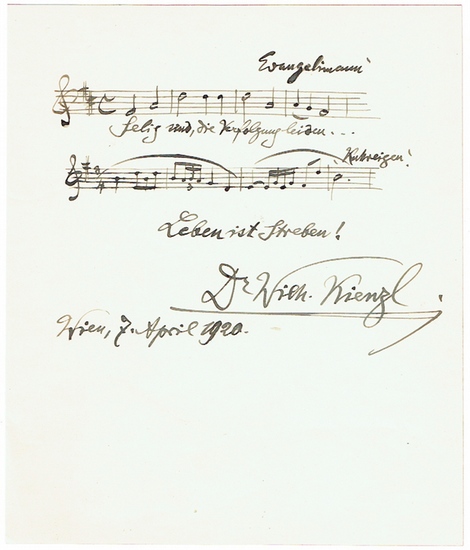 "Evangelimann"
Selig sind, die Verfolgung leiden...
"Kuhreigen".
Leben ist Streben!
Dr Wilh. Kienzl.
Wien, 7. April 1920.